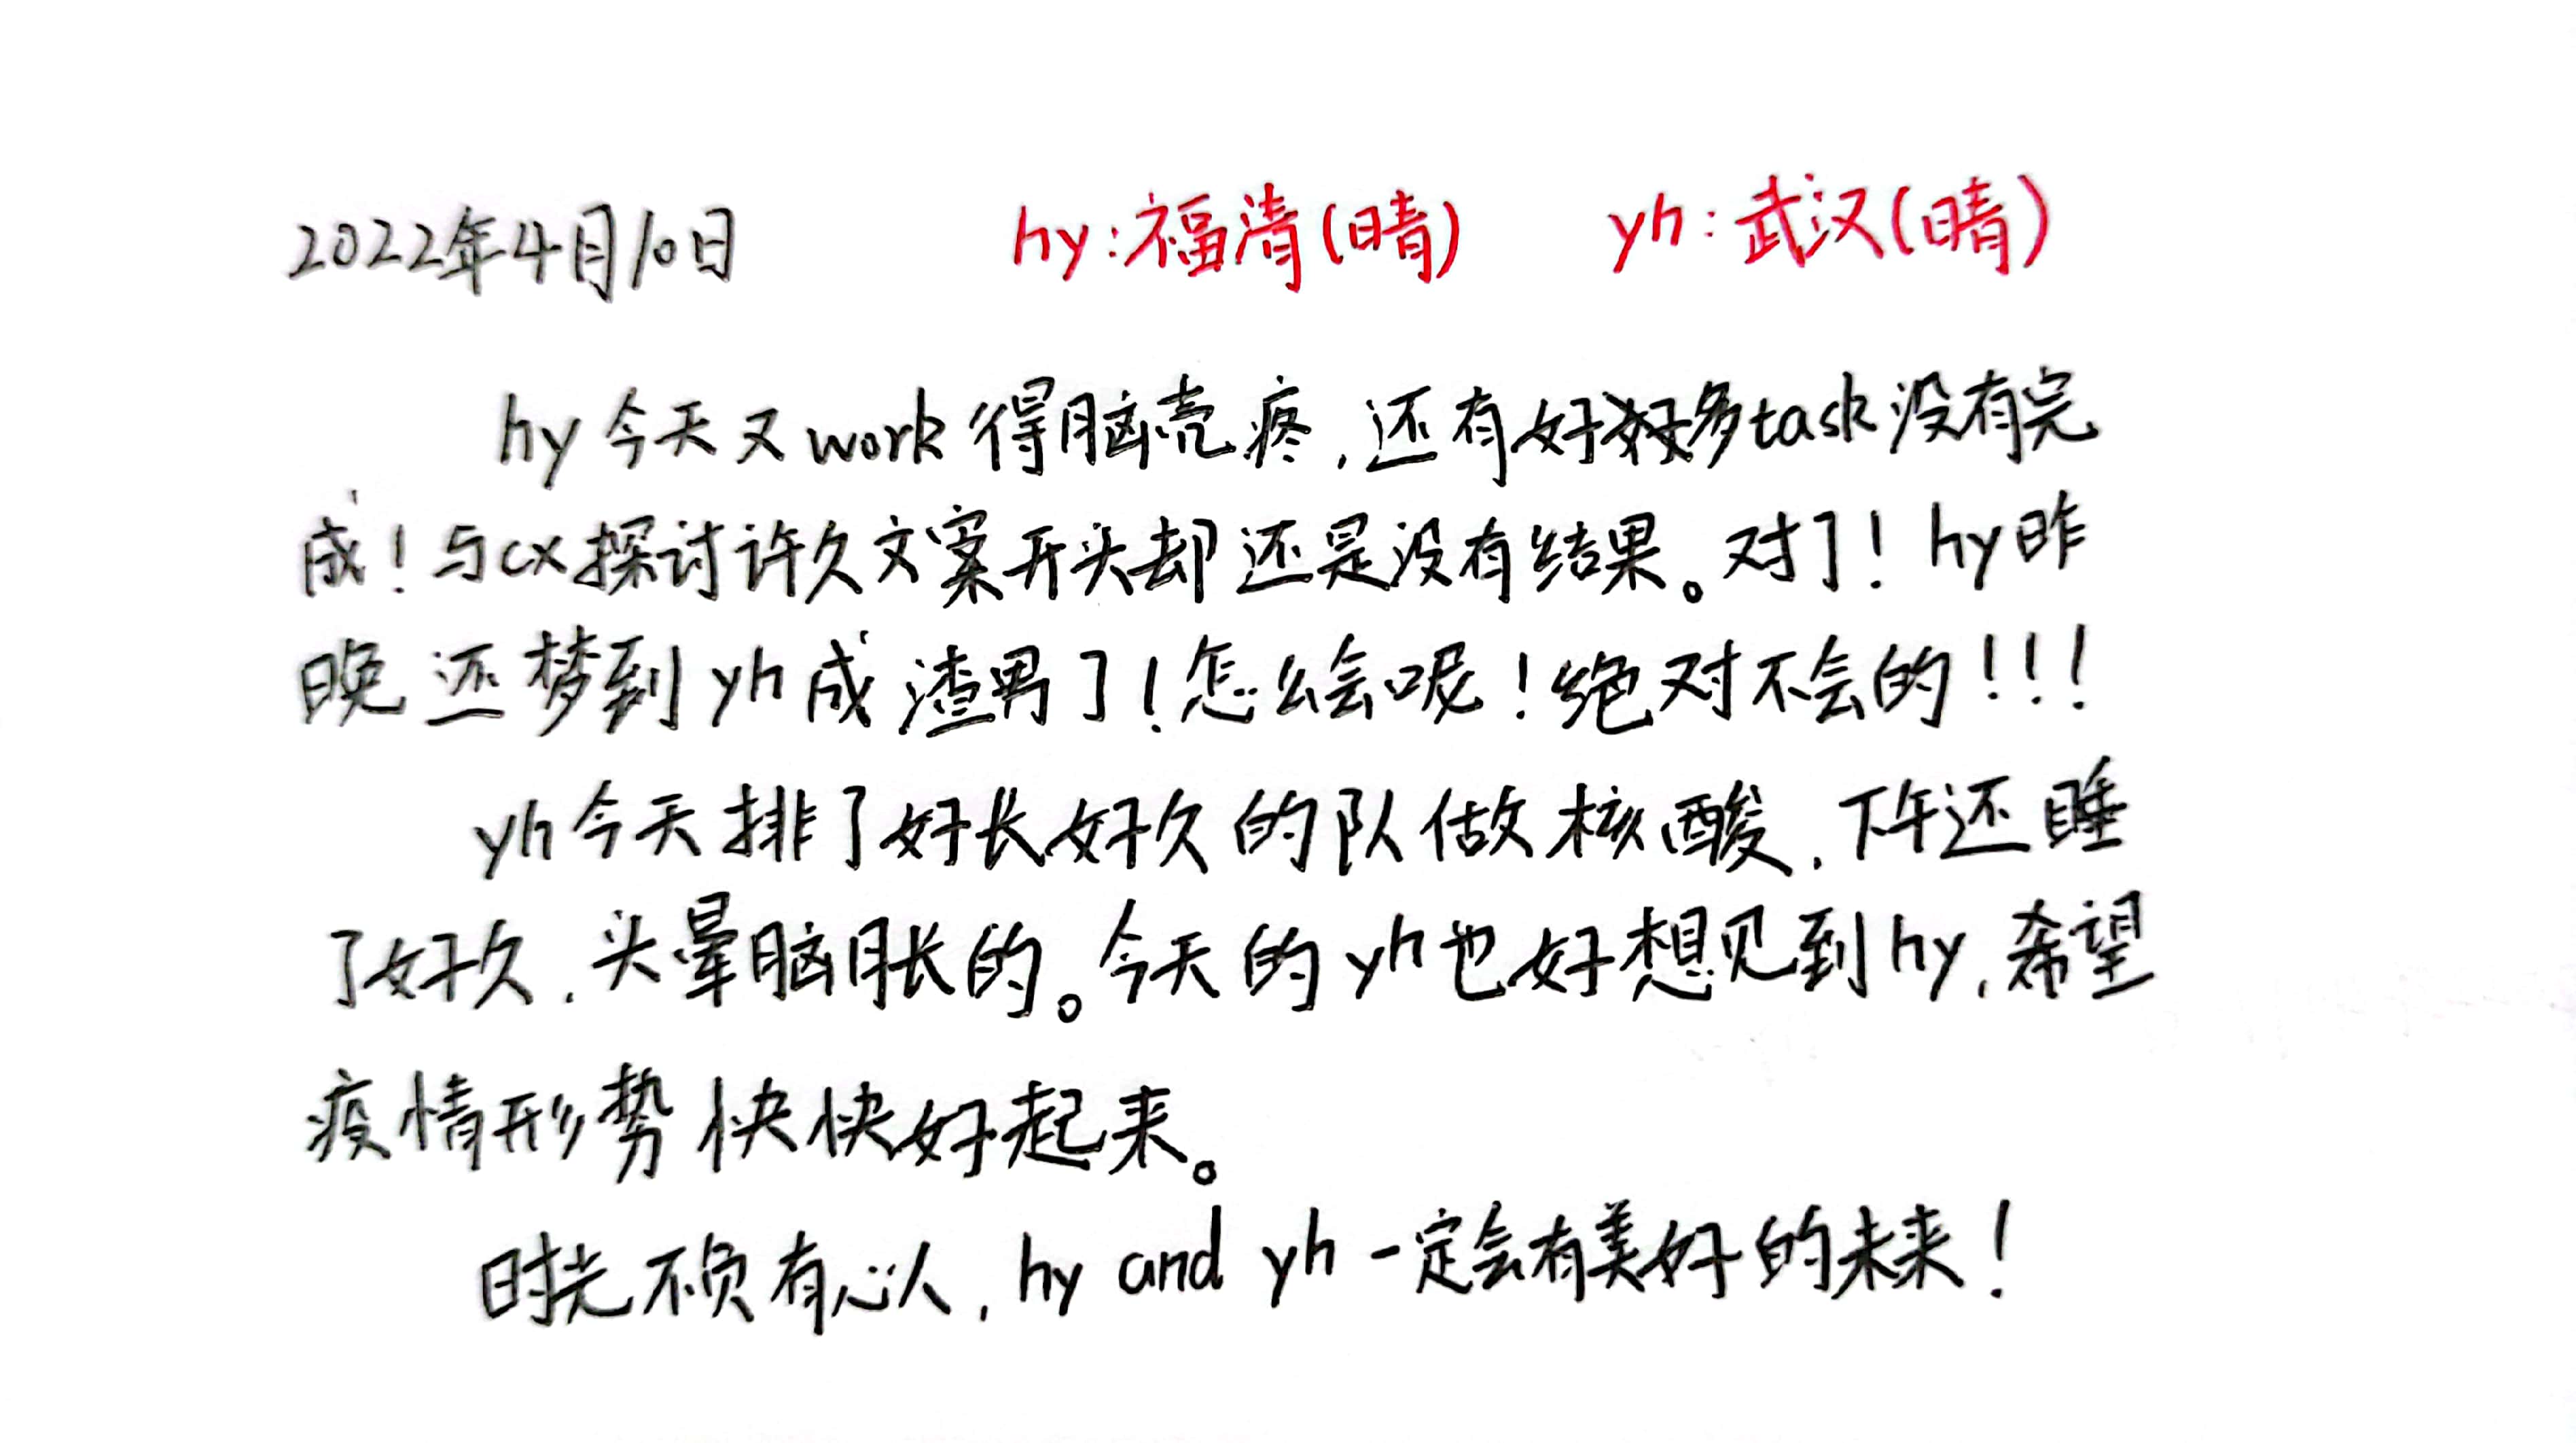 2022年4月10日 hy:福清(晴) yh:武汉(晴)
hy今天又work得脑壳疼,还有好好多task没有完
成!与cx探讨许久文案开头却还是没有结果。对了!hy昨
晚还梦到yh成渣男了!怎么会呢!绝对不会的!!!
yh今天排了好长好久的队做核酸,下午还睡
了好久,头晕脑胀的。今天的yh也好想见到hy,希望
疫情形势快快好起来。
时光不负有心人,hy and yh一定会有美好的未来!